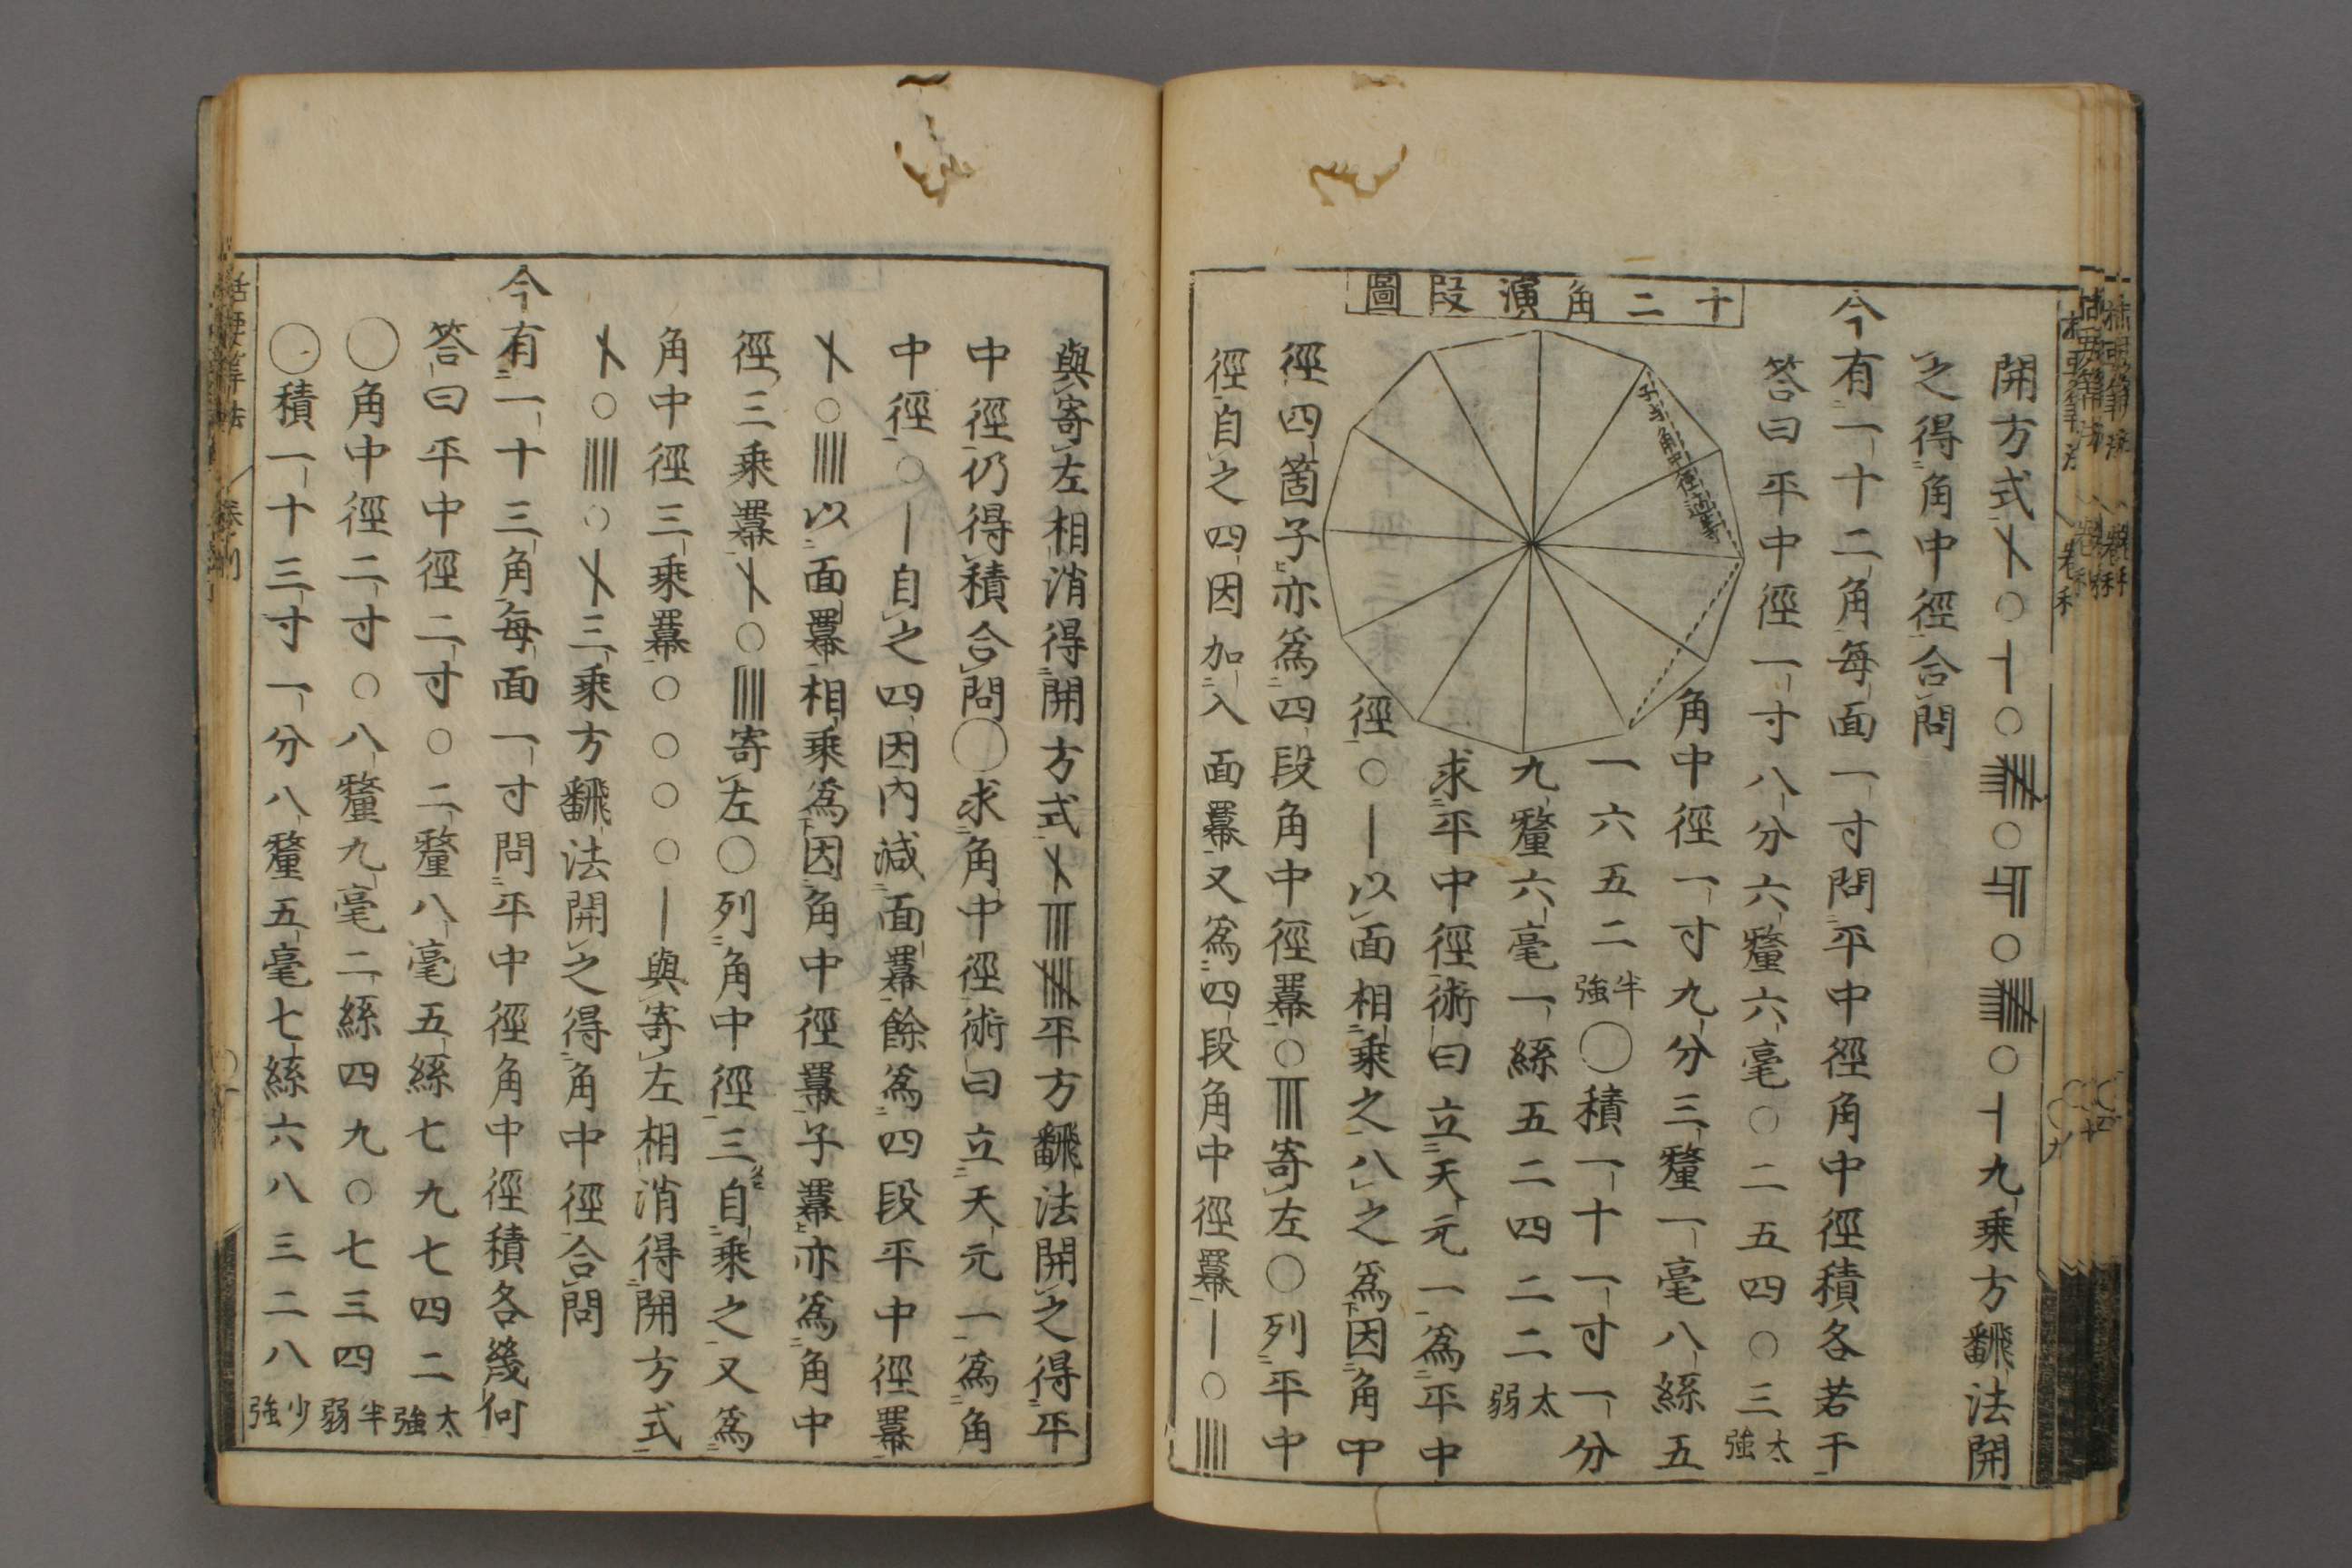 開方式〇〇〇〇〇九乘方飜法開
之得角中徑合問
今有一十二角每面一寸問平中徑角中徑積各若干
答曰平中徑一寸八分六釐六毫〇二五四〇三太強
十二角演段圖
角中徑適等
角中徑一寸九分三釐一毫八絲五
一六五二半強〇積一十一寸一分
九釐六毫一絲五二四二二太弱
求平中徑術曰立天元一爲平中
徑〇|以面相乘之八之爲因角中
徑四箇子亦爲四段角中徑羃〇寄左〇列平中
徑自之四因加入面羃又爲四段角中徑羃|〇||||
與寄左相消得開方式平方飜法開之得平
中徑仍得積合問〇求角中徑術曰立天元一爲角
中徑〇|自之四因內減面羃餘爲四段平中徑羃
〇||||以面羃相乘爲因角中徑羃子羃亦爲角中
徑三乘羃〇||||寄左〇列角中徑三自乘之又爲
角中徑三乘羃〇〇〇〇|與寄左相消得開方式
〇||||〇三乘方飜法開之得角中徑合問
今有一十三角每面一寸問平中徑角中徑積各幾何
答曰平中徑二寸〇二釐八毫五絲七九七四二太強
〇角中徑二寸〇八釐九毫二絲四九〇七三四半弱
〇積一十三寸一分八釐五毫七絲六八三二八少強